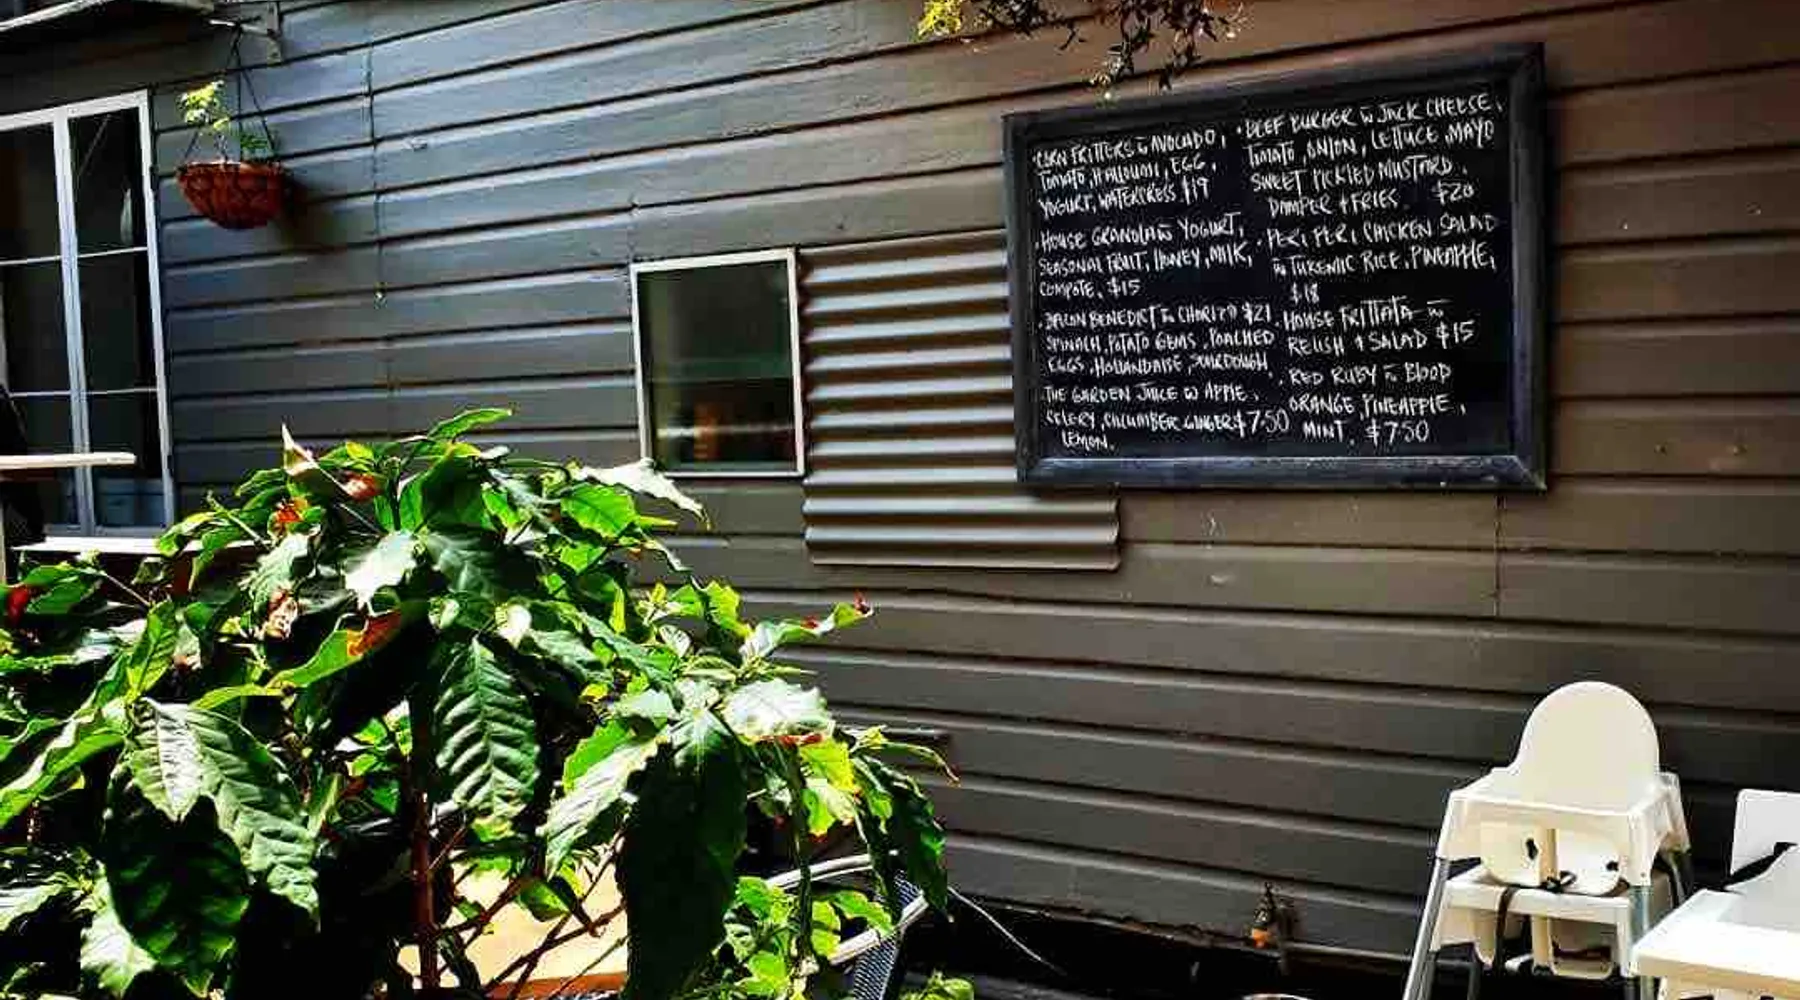 ·CORN FRITTERS W AVOCADO,
TOMATO, HALLOUMI, EGG,
YOGURT, WATERCRESS $19
·HOUSE GRANOLA W YOGURT,
SEASONAL FRUIT, HONEY, MILK,
COMPOTE. $15
BENEDICT W CHORIZO $21
SPINACH, POTATO GEMS, POACHED
EGGS, HOLLANDAISE, SOURDOUGH
THE GARDEN JUICE W APPLE,
CELERY, CUCUMBER GINGER $7.50
LEMON.
·BEEF BURGER W JACK CHEESE,
TOMATO, ONION, LETTUCE, MAYO
SWEET PICKLED MUSTARD,
DAMPER + FRIES $20
·PERI PERI CHICKEN SALAD
W RICE, PINEAPPLE,
$18
·HOUSE FRITTATA W
RELISH + SALAD $15
·RED RUBY W BLOOD
ORANGE, PINEAPPLE,
MINT. $7.50